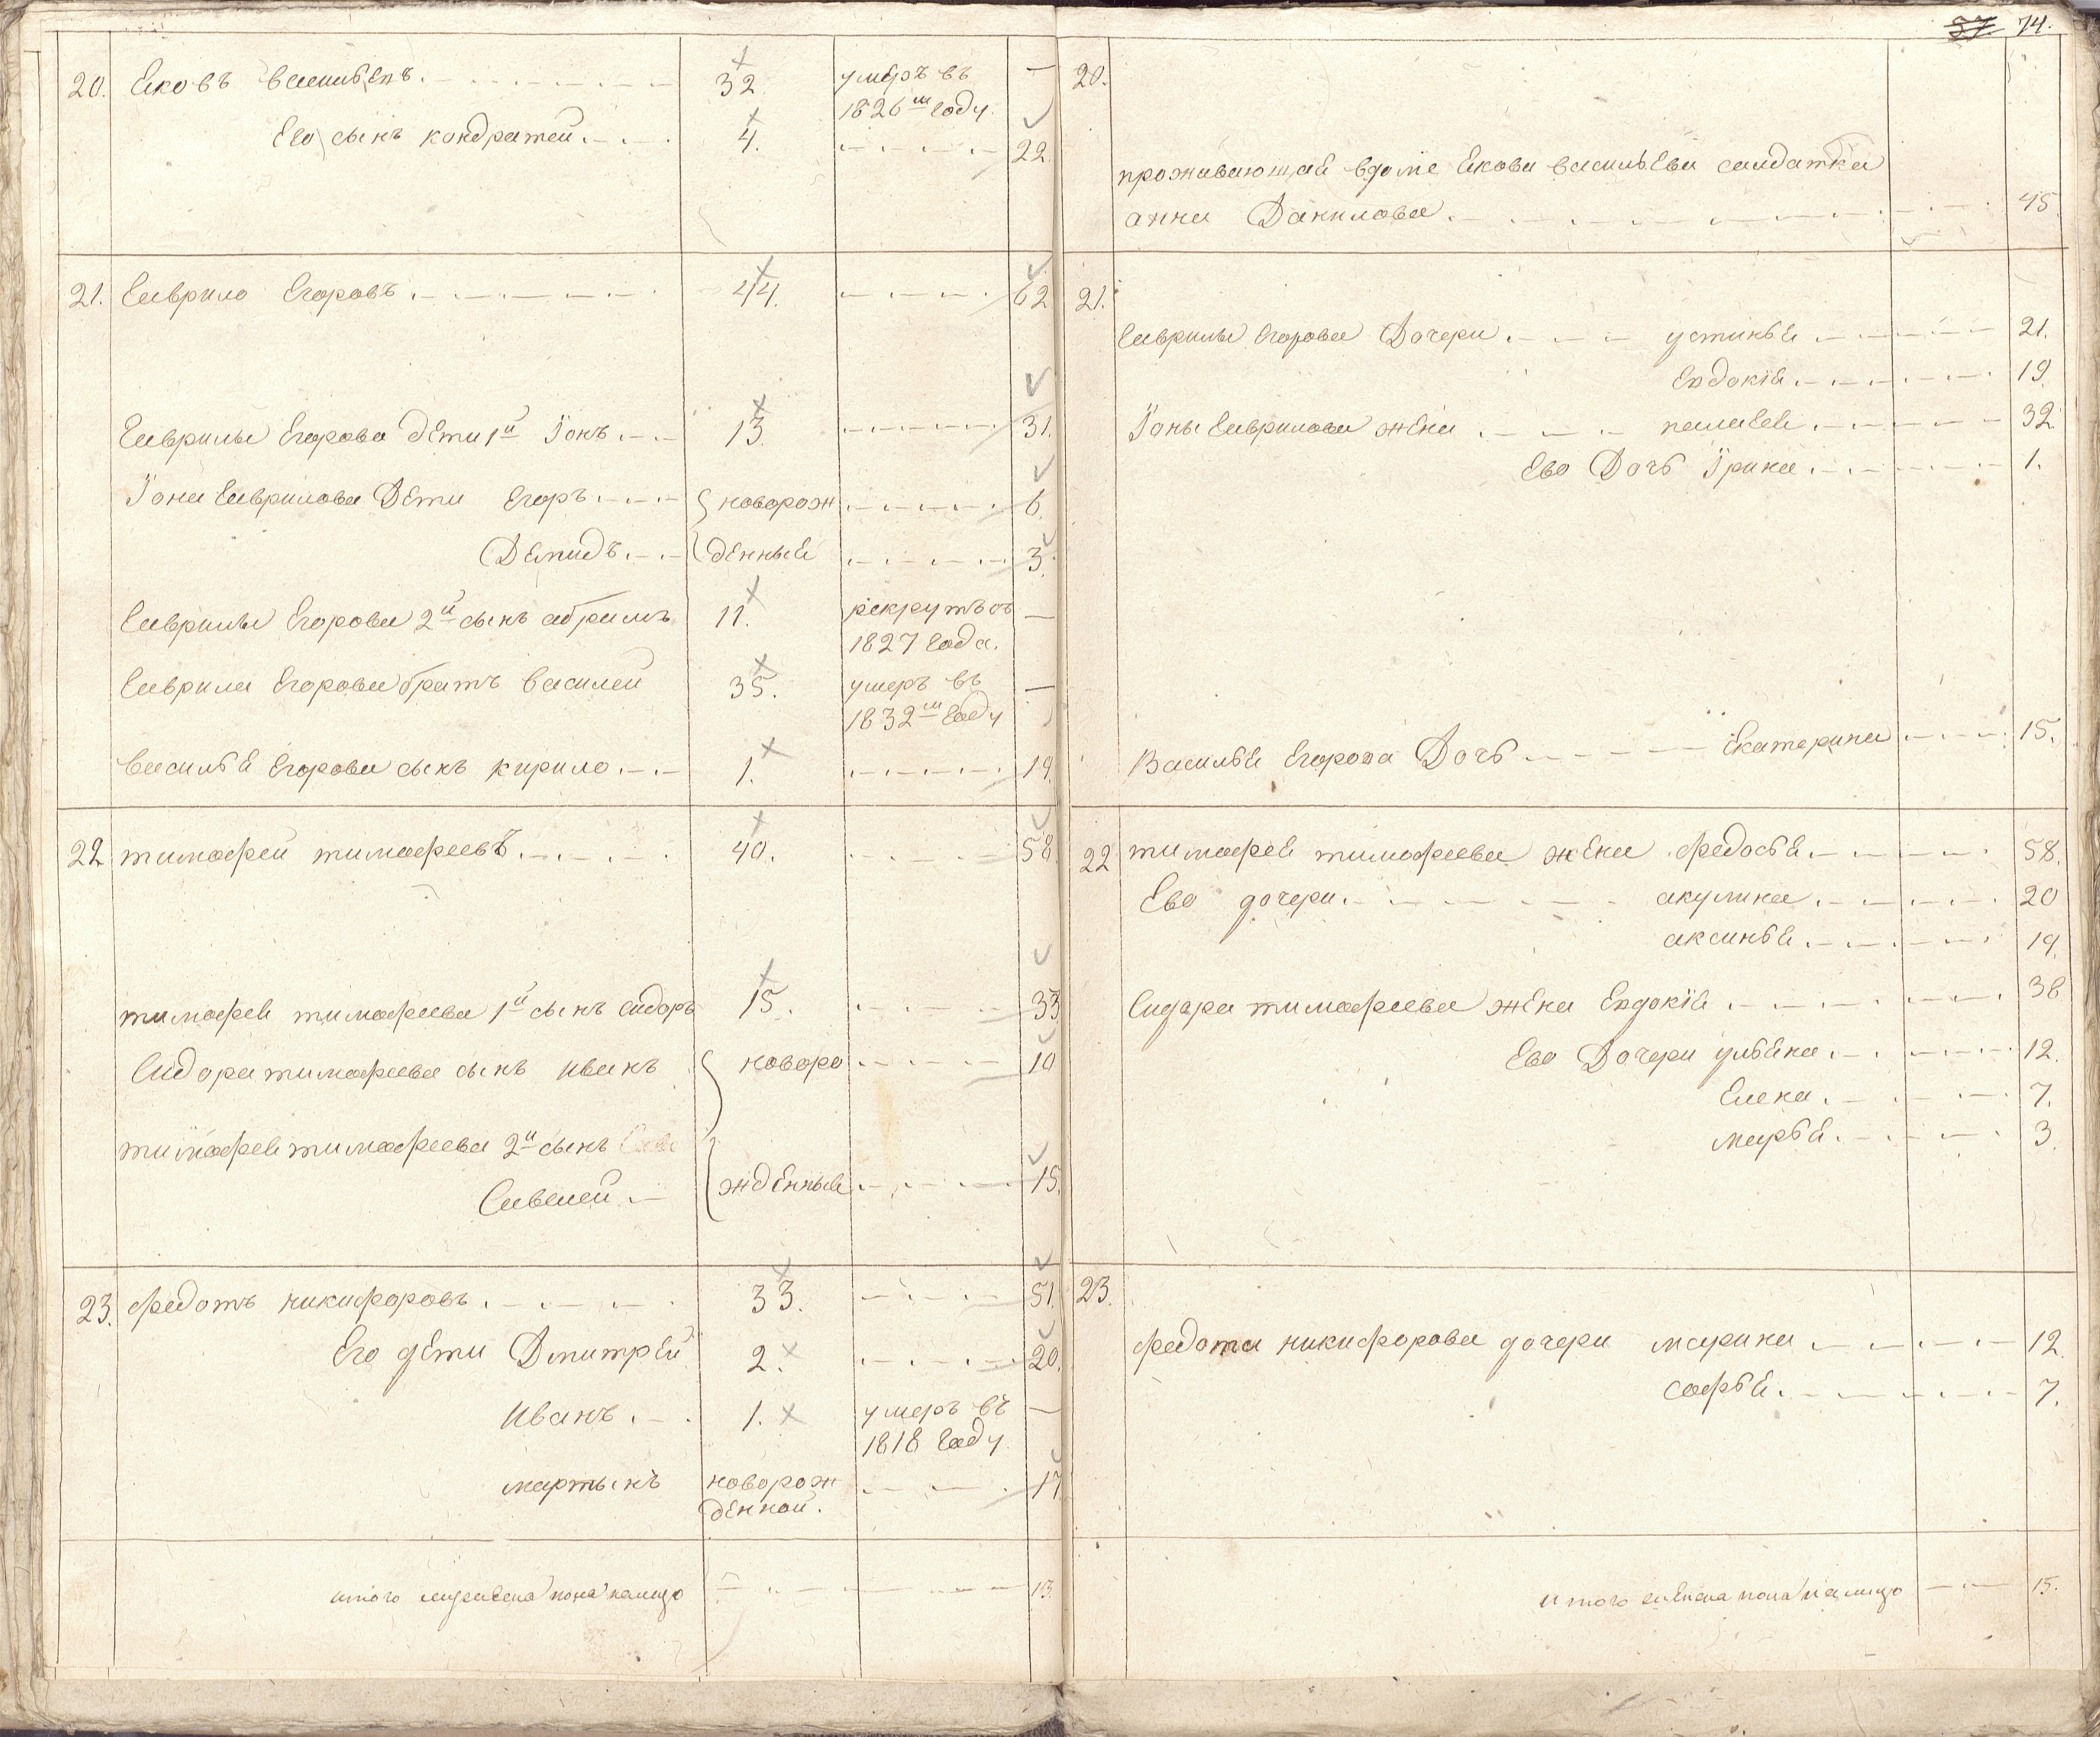 20. Яковъ васильевъ. 32. умеръ въ —
1826м году.
Его сынъ кондратей. 4. 22.
21. Гаврило Егоровъ. 44. 62
Гаврилы Егорова дети 1й Iонъ 13. 31.
Iона Гаврилова Дети Егоръ новорож 6.
Демидъ. денныя 3.
Гаврилы Егорова 2й сынъ абрамъ 11. рекрутъ съ —
1827 Года.
Гаврила Егорова братъ василей 35. умеръ въ —
1832м Году
василья Егорова сынъ кирило 1. 19.
22 тимофей тимофеевъ. 40. 58
тимофея тимофеева 1й сынъ Сидоръ 15. 33
Сидора тимофеева сынъ иванъ новоро 10
тимофея тимофеева 2й сынъ
Савелей жденныя 15.
23. федотъ никифоровъ. 33. 51.
Его дети Дмитрей 2. 20.
Иванъ. 1. умеръ въ —
1818 Году.
мартынъ новорож 17
денной.
итого мужеска пола налицо 13.
57. 74.
20.
проживающая вдоме Якова васильева салдатка
анна Данилова. 45.
21.
Гаврилы Егорова Дочери устинья 21.
Евдокiя. 19.
Iоны Гаврилова жена пелагея 32
Ево Дочь Iрина. 1.
Василья Егорова Дочь Екатерина 15.
22 тимофея тимофеева жена федосья. 58.
Ево дочери. акулина 20
аксинья. 19.
Сидара тимофеева жена Евдокiя 38
Ево Дочери ульяна. 12.
Елена. 7.
марья. 3.
23.
федота никифорова дочери марина 12.
софья. 7.
итого женска пола налицо 15.